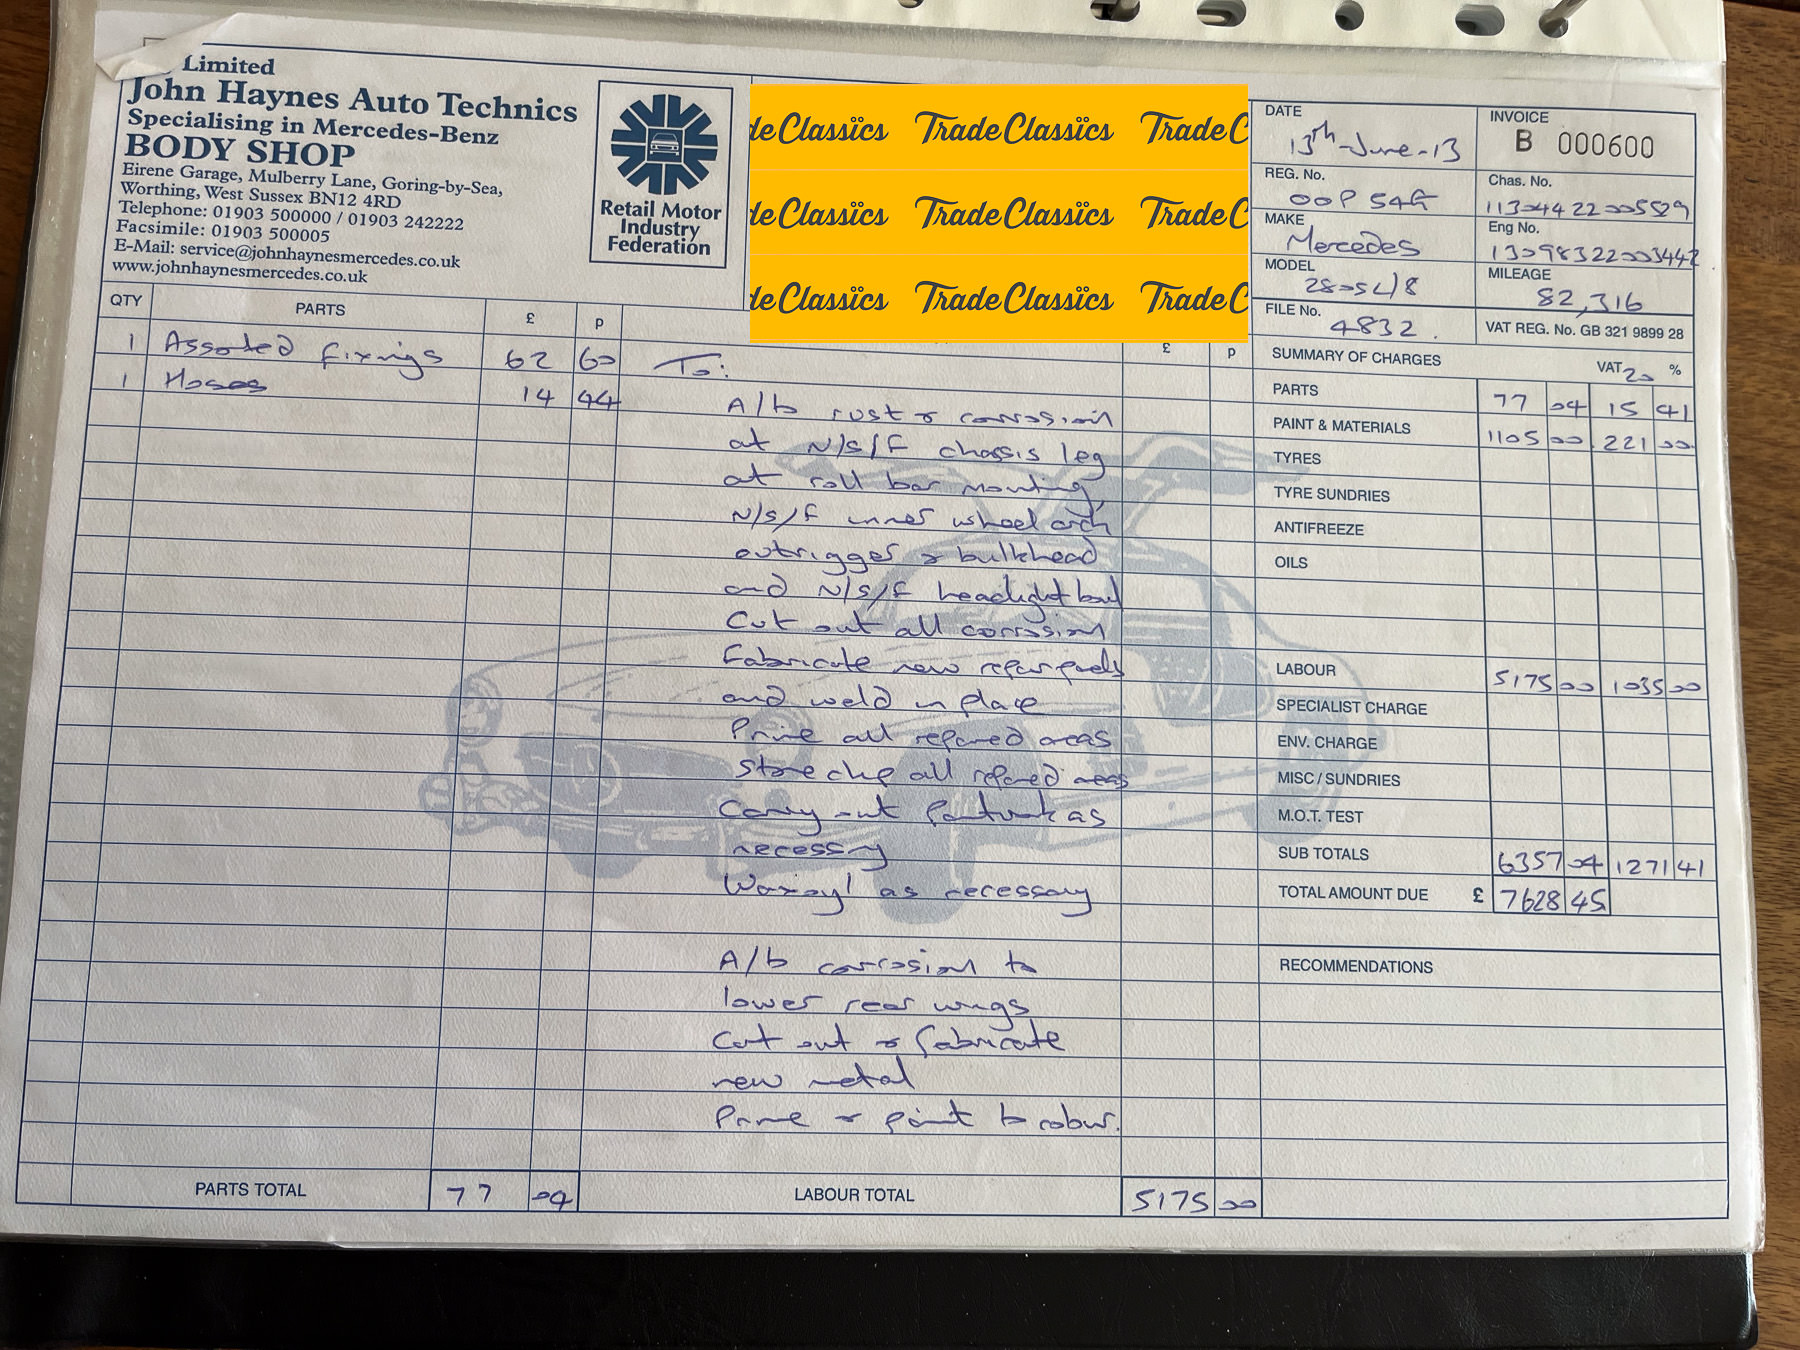 Limited
John Haynes Auto Technics
Specialising in Mercedes-Benz
BODY SHOP
Eirene Garage, Mulberry Lane, Goring-by-Sea,
Worthing, West Sussex BN12 4RD
Telephone: 01903 500000 / 01903 242222
Facsimile: 01903 500005
E-Mail: service@johnhaynesmercedes.co.uk
www.johnhaynesmercedes.co.uk
Retail Motor
Industry
Federation
deClassics TradeClassics TradeC
deClassics TradeClassics TradeC
deClassics TradeClassics TradeC
DATE 13th-June-13
INVOICE B 000600
REG. No. OOP 54G
Chas. No. 11304422005529
MAKE Mercedes
Eng No. 13098322003442
MODEL 280SL/8
MILEAGE 82,316
FILE No. 4832.
VAT REG. No. GB 321 9899 28
QTY PARTS £ p £ p
1 Assorted fixings 62 60
1 Hoses 14 44
To:
A/b rust & corrosion
at N/S/F chassis leg
at roll bar mounting,
N/S/F inner wheel arch
outrigger & bulkhead
and N/S/F headlight bowl
Cut out all corrosion
Fabricate new repair panels
and weld in place
Prime all repaired areas
Stone chip all repaired areas
Carry out paintwork as
necessary
Waxoyl as necessary
A/b corrosion to
lower rear wings
Cut out & fabricate
new metal
Prime & paint to colour.
SUMMARY OF CHARGES VAT 20 %
PARTS 77 04 15 41
PAINT & MATERIALS 1105 00 221 00
TYRES
TYRE SUNDRIES
ANTIFREEZE
OILS
LABOUR 5175 00 1035 00
SPECIALIST CHARGE
ENV. CHARGE
MISC / SUNDRIES
M.O.T. TEST
SUB TOTALS 6357 04 1271 41
TOTAL AMOUNT DUE £ 7628 45
RECOMMENDATIONS
PARTS TOTAL 77 04
LABOUR TOTAL 5175 00